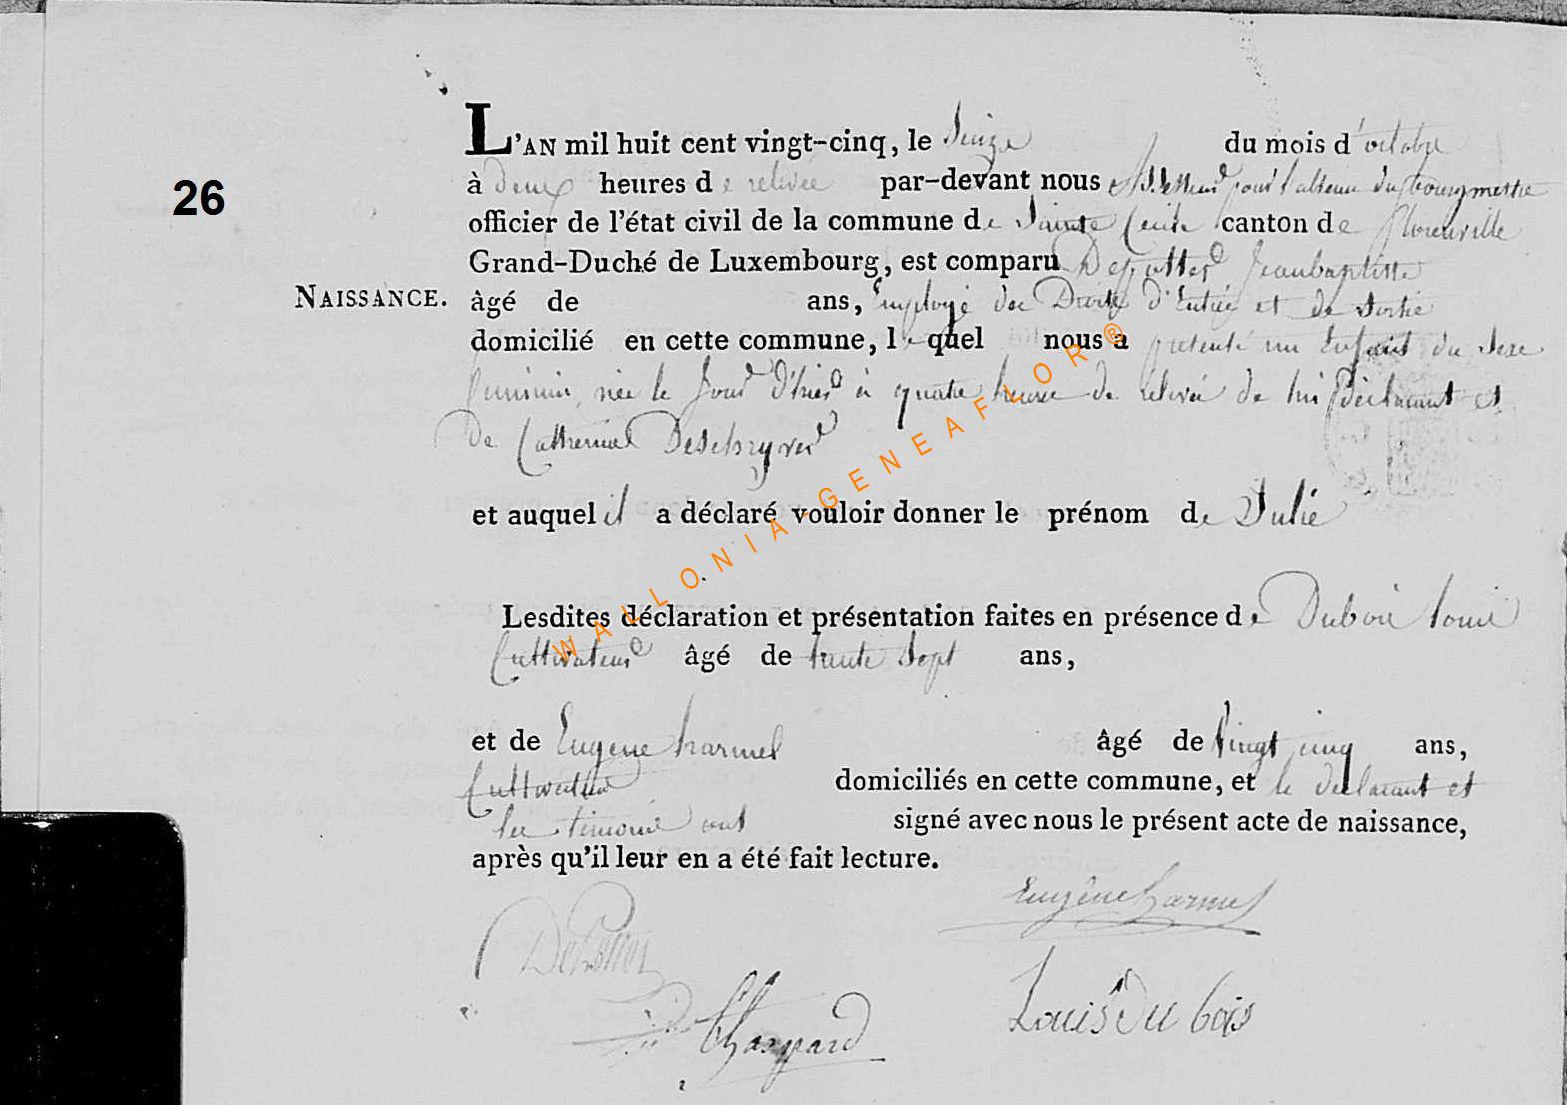 26
L'AN mil huit cent vingt-cinq, le Seize du mois d'octobre
à deux heures de relevée par-devant nous assesseur pour l'absence du bourgmestre
officier de l'état civil de la commune de Sainte Cecile canton de florenville
Grand-Duché de Luxembourg, est comparu Depotter Jeanbaptiste
NAISSANCE.
âgé de ans, Employé des Droits d'Entrée et de Sortie
domicilié en cette commune, lequel nous a présenté un Enfant du Sexe
feminin, née le Jour d'hier à quatre heures de relevée de lui Déclarant et
De Catherine Deschryver
et auquel il a déclaré vouloir donner le prénom de Julie
Lesdites déclaration et présentation faites en présence de Dubois Louis
Cultivateur âgé de trente Sept ans,
et de Eugene harmel âgé de Vingt cinq ans,
Cultivateur domiciliés en cette commune, et le déclarant et
les temoins ont signé avec nous le présent acte de naissance,
après qu'il leur en a été fait lecture.
Eugène harmel
DePotter
Louis Du bois
Chaspard
WALLONIA-GENEAFLOR®